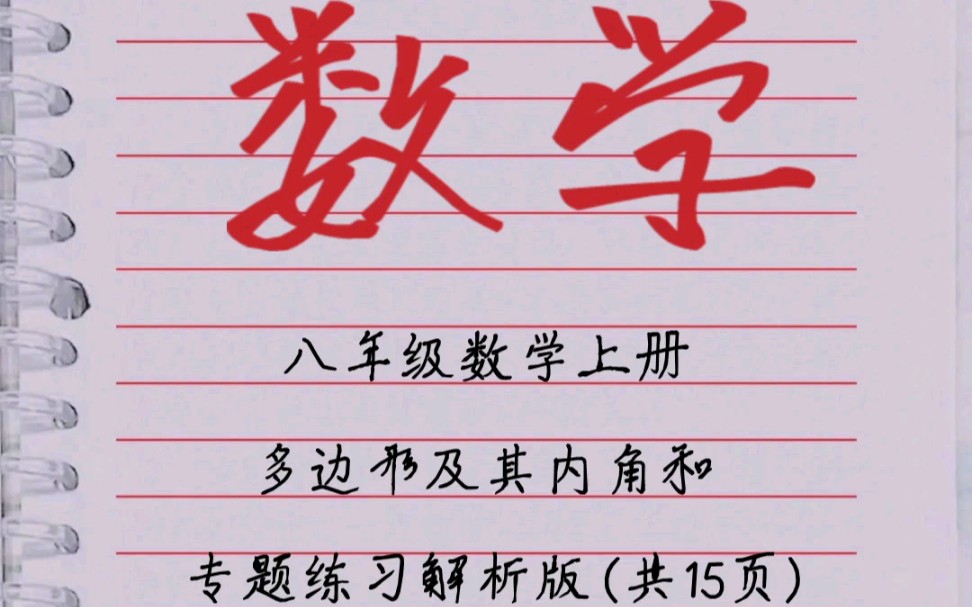 数学
八年级数学上册
多边形及其内角和
专题练习解析版(共15页)